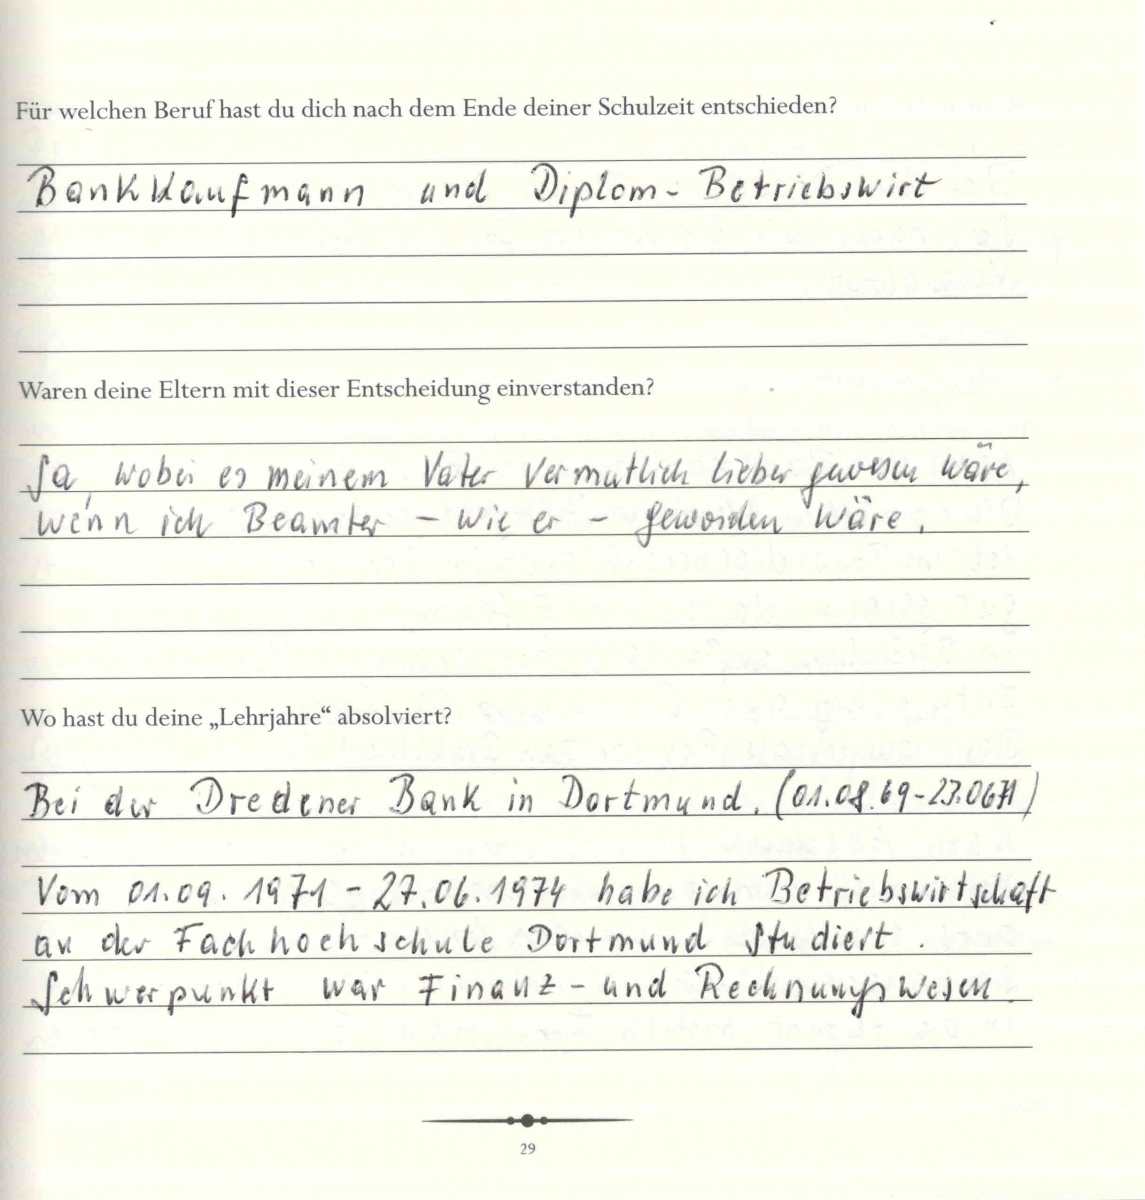 Für welchen Beruf hast du dich nach dem Ende deiner Schulzeit entschieden?
Bankkaufmann und Diplom-Betriebswirt
Waren deine Eltern mit dieser Entscheidung einverstanden?
Ja, wobei es meinem Vater vermutlich lieber gewesen wäre,
wenn ich Beamter – wie er – geworden wäre.
Wo hast du deine „Lehrjahre“ absolviert?
Bei der Dredener Bank in Dortmund. (01.08.69-23.0671)
Vom 01.09.1971 - 27.06.1974 habe ich Betriebswirtschaft
an der Fachhochschule Dortmund studiert.
Schwerpunkt war Finanz- und Rechnungswesen.
29